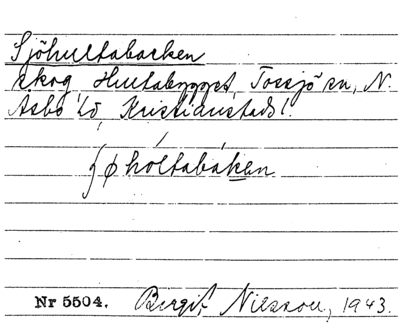 Sjöhultabacken
skog Hultabygget, Tossjö sn, N.
Åsbo hd, Kristianstads l.
ʃø hóltabáken
Nr 5504. Birgit Nilsson, 1943.